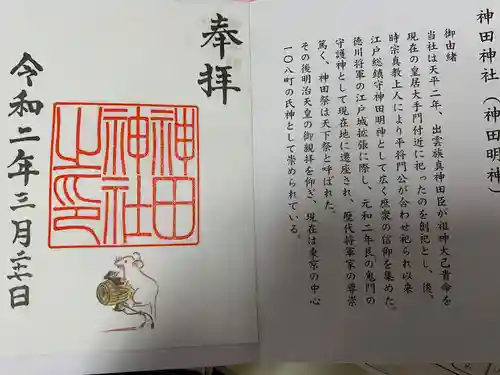 神田神社（神田明神）
御由緒
当社は天平二年、出雲族真神田臣が祖神大己貴命を
現在の皇居大手門付近に祀ったのを創祀とし、後、
時宗真教上人により平将門公が合わせ祀られ以来
江戸総鎮守神田明神として広く庶衆の信仰を集めた。
徳川将軍の江戸城拡張に際し、元和二年艮の鬼門の
守護神として現在地に遷座され、歴代将軍家の尊崇
篤く、神田祭は天下祭と呼ばれた。
その後明治天皇の御親拝を仰ぎ、現在は東京の中心
一〇八町の氏神として崇められている。
奉拝
神田
神社
之印
令和二年三月二十一日